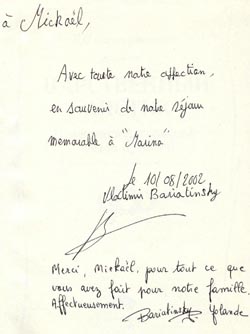 à Mickaël,
Avec toute notre affection,
en souvenir de notre séjour
memorable à "Marino"
le 10/08/2002
Vladimir Bariatinsky
Merci, Mickaël, pour tout ce que
vous avez fait pour notre famille.
Affectueusement.
Bariatinsky Yolande